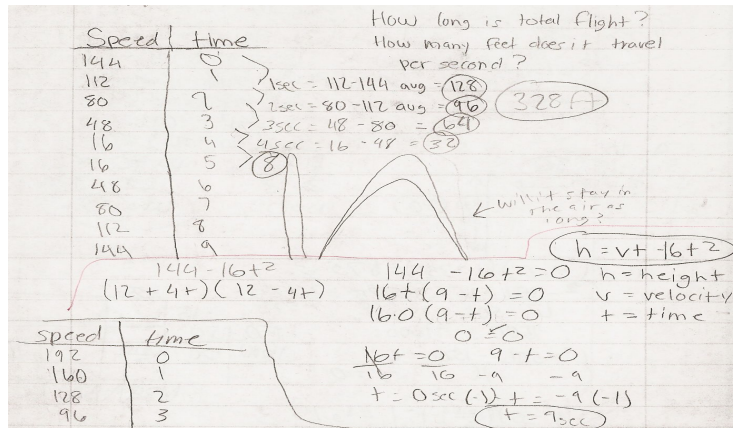 How long is total flight?
How many feet does it travel
per second?
Speed | time
144 0
112 1
80 2
48 3
16 4
16 5
48 6
80 7
112 8
144 9
1sec = 112-144 avg = 128
2sec = 80-112 avg = 96
3sec = 48 - 80 = 64
4sec = 16 - 48 = 32
8
328 ft
will it stay in
the air as
long?
h = vt -16t2
h = height
v = velocity
t = time
144 - 16t2
(12 + 4t)(12 - 4t)
144 - 16t2 = 0
16t(9 - t) = 0
16.0(9 - t) = 0
0 = 0
16t = 0 9 - t = 0
16 16 -9 -9
t = 0 sec (-1) t = -9 (-1)
t = 9sec
speed time
192 0
160 1
128 2
96 3